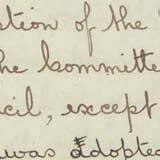 tion of the
he Committe
cil, except
was adopted